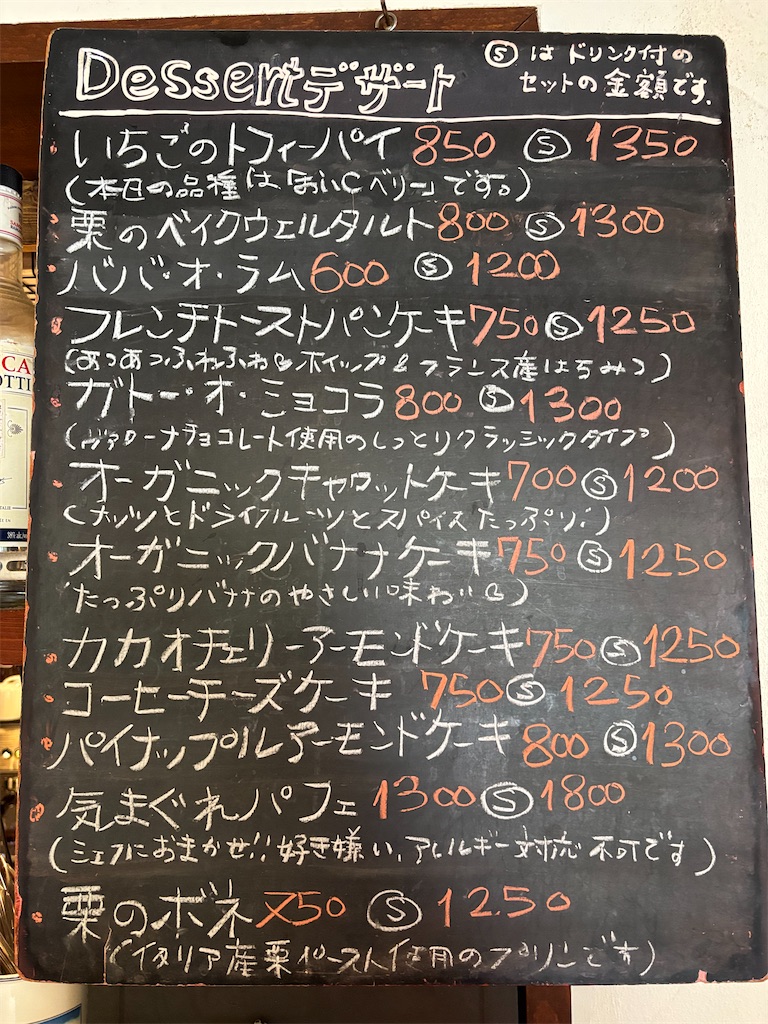 Dessertデザート
Ⓢ は ドリンク付の
セットの金額です.
いちごのトフィーパイ 850 Ⓢ 1350
(本日の品種は「おいCベリー」です。)
栗のベイクウェルタルト 800 Ⓢ 1300
ババ・オ・ラム 600 Ⓢ 1200
フレンチトーストパンケーキ 750 Ⓢ 1250
(あつあつふわふわ ホイップ & フランス産はちみつ)
ガトー・オ・ショコラ 800 Ⓢ 1300
(ヴァローナチョコレート使用のしっとりクラッシックタイプ)
オーガニックキャロットケーキ 700 Ⓢ 1200
(ナッツとドライフルーツとスパイスたっぷり!)
オーガニックバナナケーキ 750 Ⓢ 1250
たっぷりバナナのやさしい味わい)
カカオチェリーアーモンドケーキ 750 Ⓢ 1250
コーヒーチーズケーキ 750 Ⓢ 1250
パイナップルアーモンドケーキ 800 Ⓢ 1300
気まぐれパフェ 1300 Ⓢ 1800
(シェフにおまかせ!! 好き嫌い、アレルギー対応不可です)
栗のボネ 750 Ⓢ 1250
(イタリア産栗ペースト使用のプリンです)